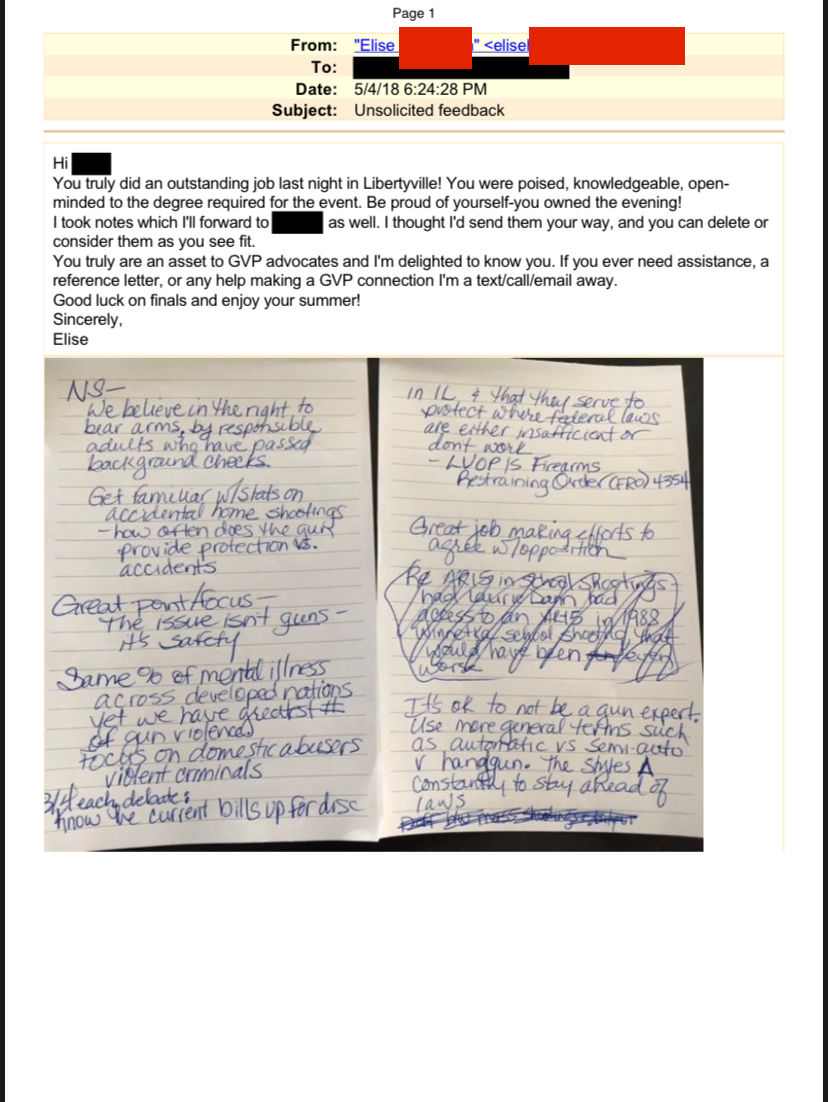 Page 1
From: "Elise " <elisel
To:
Date: 5/4/18 6:24:28 PM
Subject: Unsolicited feedback
Hi
You truly did an outstanding job last night in Libertyville! You were poised, knowledgeable, open-
minded to the degree required for the event. Be proud of yourself-you owned the evening!
I took notes which I'll forward to as well. I thought I'd send them your way, and you can delete or
consider them as you see fit.
You truly are an asset to GVP advocates and I'm delighted to know you. If you ever need assistance, a
reference letter, or any help making a GVP connection I'm a text/call/email away.
Good luck on finals and enjoy your summer!
Sincerely,
Elise
NS-
We believe in the right to
bear arms, by responsible
adults who have passed
background checks.
Get familiar w/stats on
accidental home shootings
- how often does the gun
provide protection vs.
accidents
Great point/focus -
The issue isn't guns -
it's safety
Same % of mental illness
across developed nations
yet we have greatest #
of gun violence.
Focus on domestic abusers
violent criminals
each debate:
know the current bills up for disc
in IL, & that they serve to
protect where federal laws
are either insufficient or
dont work
- LVOP IS Firearms
Restraining Order (ERO) 4354
Great job making efforts to
agree w/opposition
Re AR15 in school shootings
had Laurie Dann had
access to an AR15 in 1988
Winnetka school shooting that
would have been even
worse
It's ok to not be a gun expert.
Use more general terms such
as automatic vs semi-auto
v handgun. The styles Δ
constantly to stay ahead of
laws